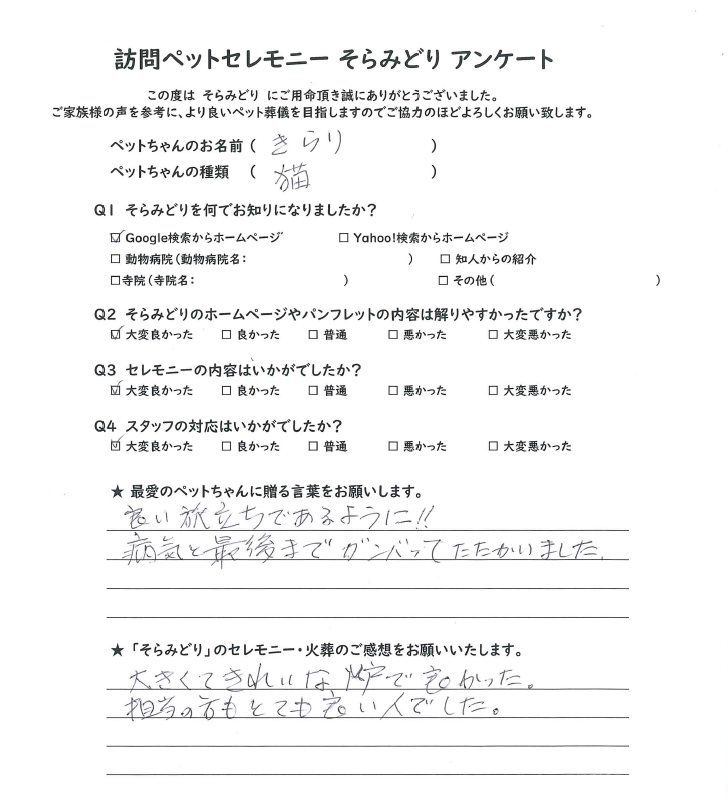 訪問ペットセレモニー そらみどり アンケート
この度は そらみどり にご用命頂き誠にありがとうございました。
ご家族様の声を参考に、より良いペット葬儀を目指しますのでご協力のほどよろしくお願い致します。
ペットちゃんのお名前 ( きらり )
ペットちゃんの種類 ( 猫 )
Q1 そらみどりを何でお知りになりましたか?
☑ Google検索からホームページ □ Yahoo!検索からホームページ
□ 動物病院(動物病院名: ) □ 知人からの紹介
□寺院(寺院名: ) □ その他( )
Q2 そらみどりのホームページやパンフレットの内容は解りやすかったですか?
☑ 大変良かった □ 良かった □ 普通 □ 悪かった □ 大変悪かった
Q3 セレモニーの内容はいかがでしたか?
☑ 大変良かった □ 良かった □ 普通 □ 悪かった □ 大変悪かった
Q4 スタッフの対応はいかがでしたか?
☑ 大変良かった □ 良かった □ 普通 □ 悪かった □ 大変悪かった
★ 最愛のペットちゃんに贈る言葉をお願いします。
良い旅立ちであるように!!
病気と最後までガンバってたたかいました.
★「そらみどり」のセレモニー・火葬のご感想をお願いいたします。
大きくてきれいな炉で良かった。
担当の方もとても良い人でした。